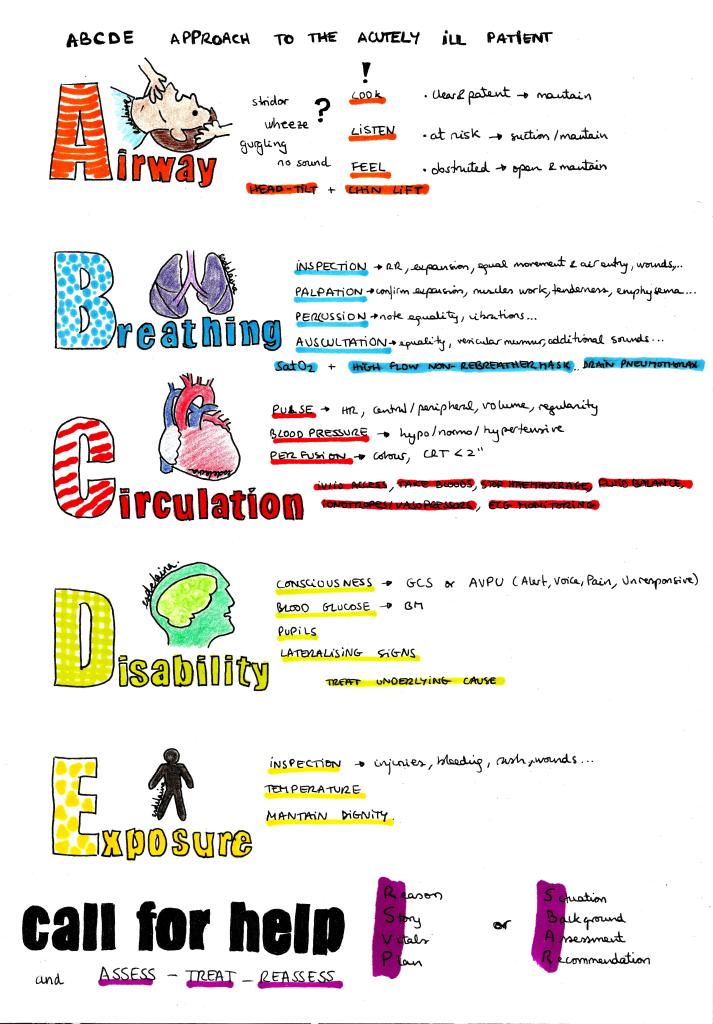 ABCDE APPROACH TO THE ACUTELY ILL PATIENT
Airway
stridor
wheeze
gurgling
no sound
?
!
LOOK
LISTEN
FEEL
• clear & patent → maintain
• at risk → suction/maintain
• obstructed → open & maintain
HEAD-TILT + CHIN LIFT
Breathing
INSPECTION → RR, expansion, equal movement & air entry, wounds,...
PALPATION → confirm expansion, muscles work, tenderness, emphysema...
PERCUSSION → note equality, vibrations...
AUSCULTATION → equality, vesicular murmur, additional sounds...
Sat O2 + HIGH FLOW NON-REBREATHER MASK.. DRAIN PNEUMOTHORAX
Circulation
PULSE → HR, central/peripheral, volume, regularity
BLOOD PRESSURE → hypo/normo/hypertensive
PERFUSION → colour, CRT < 2"
IV/IO ACCESS, TAKE BLOODS, STOP HAEMORRHAGE, FLUID BALANCE,
IONOTROPES/VASOPRESSORS, ECG MONITORING
Disability
CONSCIOUSNESS → GCS or AVPU (Alert, Voice, Pain, Unresponsive)
BLOOD GLUCOSE → BM
PUPILS
LATERALISING SIGNS
TREAT UNDERLYING CAUSE
Exposure
INSPECTION → injuries, bleeding, rash, wounds...
TEMPERATURE
MANTAIN DIGNITY.
call for help
and ASSESS - TREAT - REASSESS
Reason
Story
Vitals
Plan
or
Situation
Background
Assessment
Recommendation